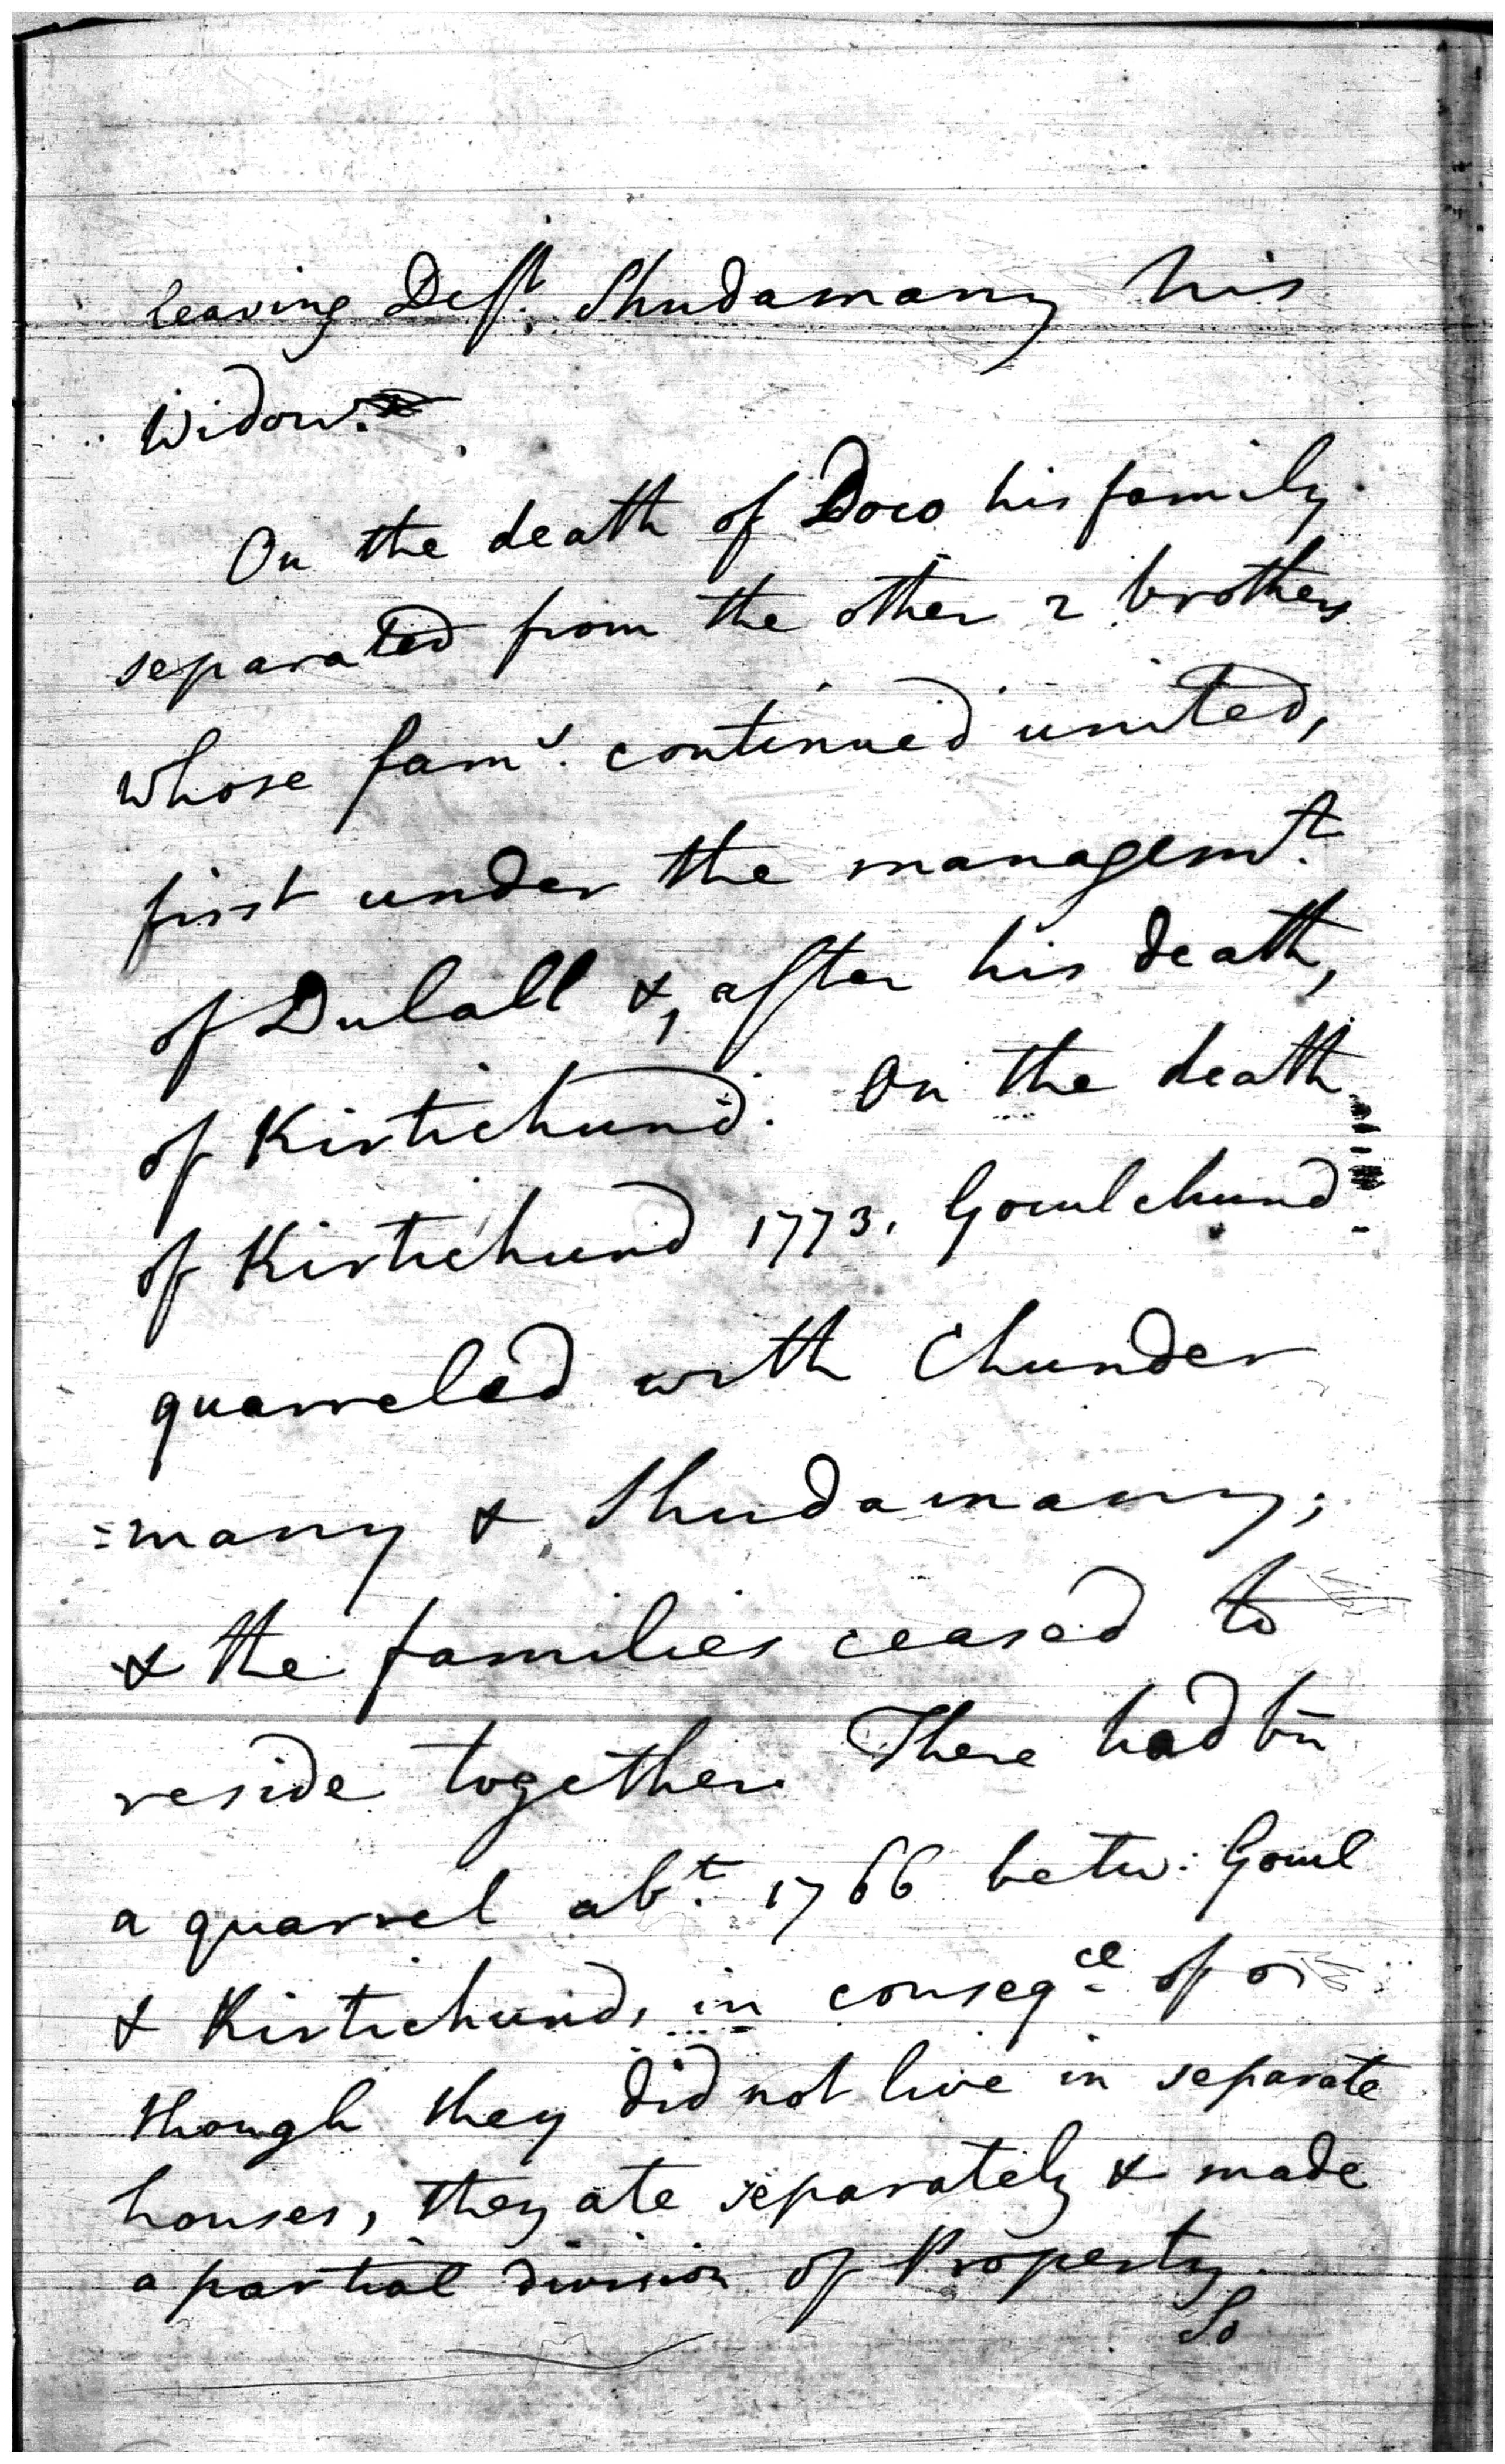 leaving Deft. Shudamany his
Widow.
On the death of Doco his family
separated from the other 2 brothers
whose fams. continued united,
first under the managemt.
of Dulall &, after his death,
of Kirtichund. On the death
of Kirtichund 1773. Goculchund
quarreled with Chunder
=many & Shudamany;
& the families ceased to
reside together. There had bn
a quarrel abt. 1766 betw: Gocul
& Kirtichund, in conseqce of
though they did not live in separate
houses, they ate separately & made
a partial division of Property.
So